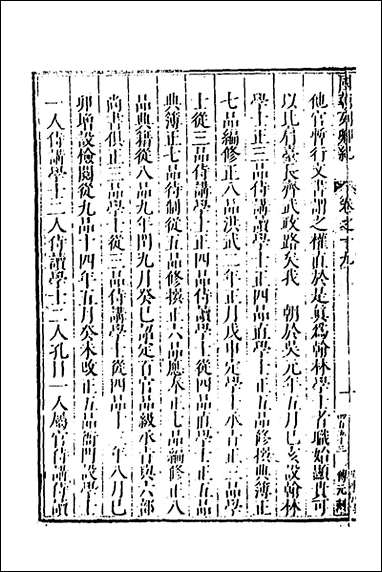 國朝列卿紀 卷之十九 一
他官暫行文書謂之權直於是真爲翰林學士者職始顯貴可
以比肩臺長齊武政路矣我 朝於吳元年五月己亥設翰林
學士正三品侍講學士正四品直學士正五品修撰典簿正
七品編修正八品洪武二年正月戊申定學士承旨正三品學
士從三品侍講學士正四品侍讀學士從四品直學士正五品
典簿正七品待制從五品修撰正六品應奉正七品編修正八
品典籍從八品九年閏九月癸巳詔定百官品級承旨與六部
尚書俱正三品學士從三品侍講學士從四品十三年八月己
卯增設檢閱從九品十四年五月癸未改正五品衙門設學士
一人侍講學士二人侍讀學士二人孔目一人屬官侍講侍讀